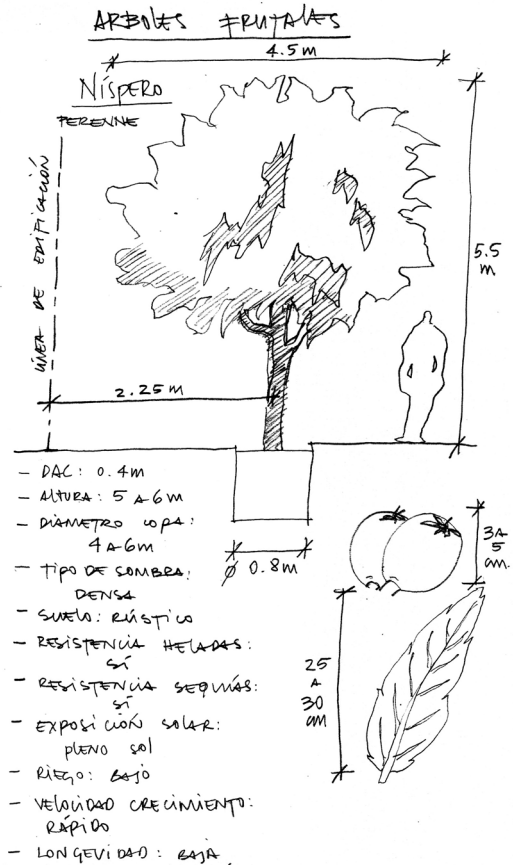 ARBOLES FRUTALES
4.5 m
NÍSPERO
PERENNE
LÍNEA DE EDIFICACIÓN
5.5
m
2.25 m
- DAC: 0.4m
- ALTURA: 5 A 6m
- DIÁMETRO COPA:
4 A 6m
- TIPO DE SOMBRA:
DENSA
- SUELO: RÚSTICO
- RESISTENCIA HELADAS:
SÍ
- RESISTENCIA SEQUÍAS:
SÍ
- EXPOSICIÓN SOLAR:
PLENO SOL
- RIEGO: BAJO
- VELOCIDAD CRECIMIENTO:
RÁPIDO
- LONGEVIDAD: BAJA
Ø 0.8m
3 A
5
cm.
25
A
30
cm